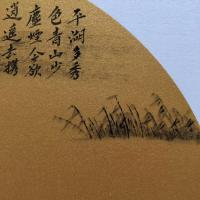 平湖多秀
色青山少
塵煙今欲
逍遥去携